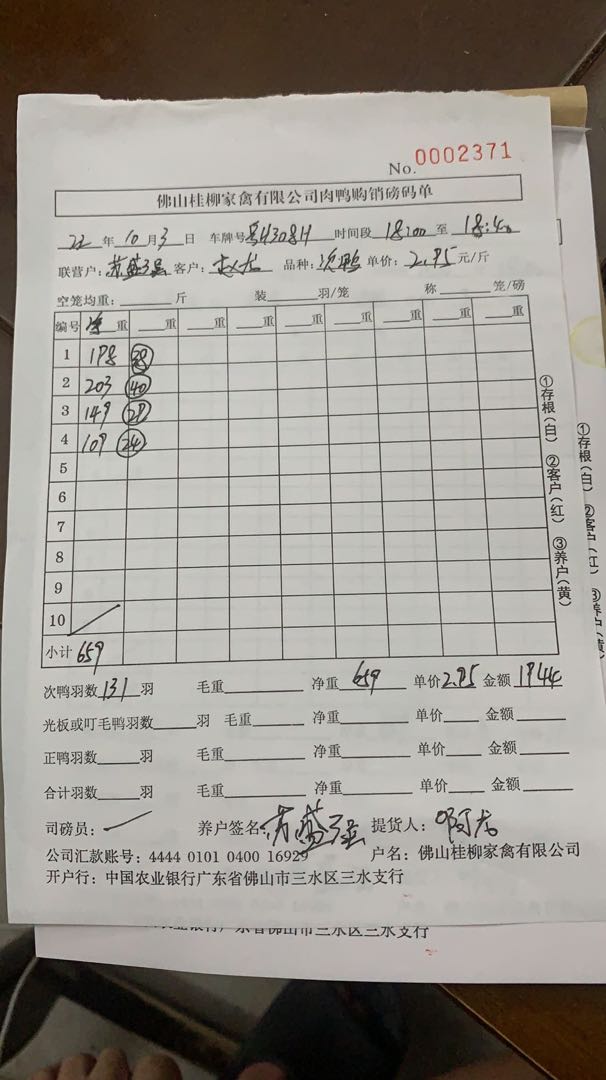 No. 0002371
佛山桂柳家禽有限公司肉鸭购销磅码单
22年10月3日 车牌号 H308H 时间段 18:00 至 18:40
联营户:苏盛强 客户: 龙 品种:次鸭 单价:2.95元/斤
空笼均重:____斤 装____羽/笼 称____笼/磅
编号 净重 __重 __重 __重 __重 __重 __重 __重 __重
1 198 38
2 203 40
3 149 29
4 109 24
5
6
7
8
9
10
小计 659
次鸭羽数131羽 毛重____ 净重 659 单价2.95 金额 1944
光板或叮毛鸭羽数____羽 毛重____ 净重____ 单价____ 金额____
正鸭羽数____羽 毛重____ 净重____ 单价____ 金额____
合计羽数____羽 毛重____ 净重____ 单价____ 金额____
司磅员: 养户签名:苏盛强 提货人:啊龙
公司汇款账号:4444 0101 0400 16929 户名:佛山桂柳家禽有限公司
开户行:中国农业银行广东省佛山市三水区三水支行
①存根(白) ②客户(红) ③养户(黄)
①存根(白) ②客户(红) ③养户(黄)
农业银行广东省佛山市三水区三水支行